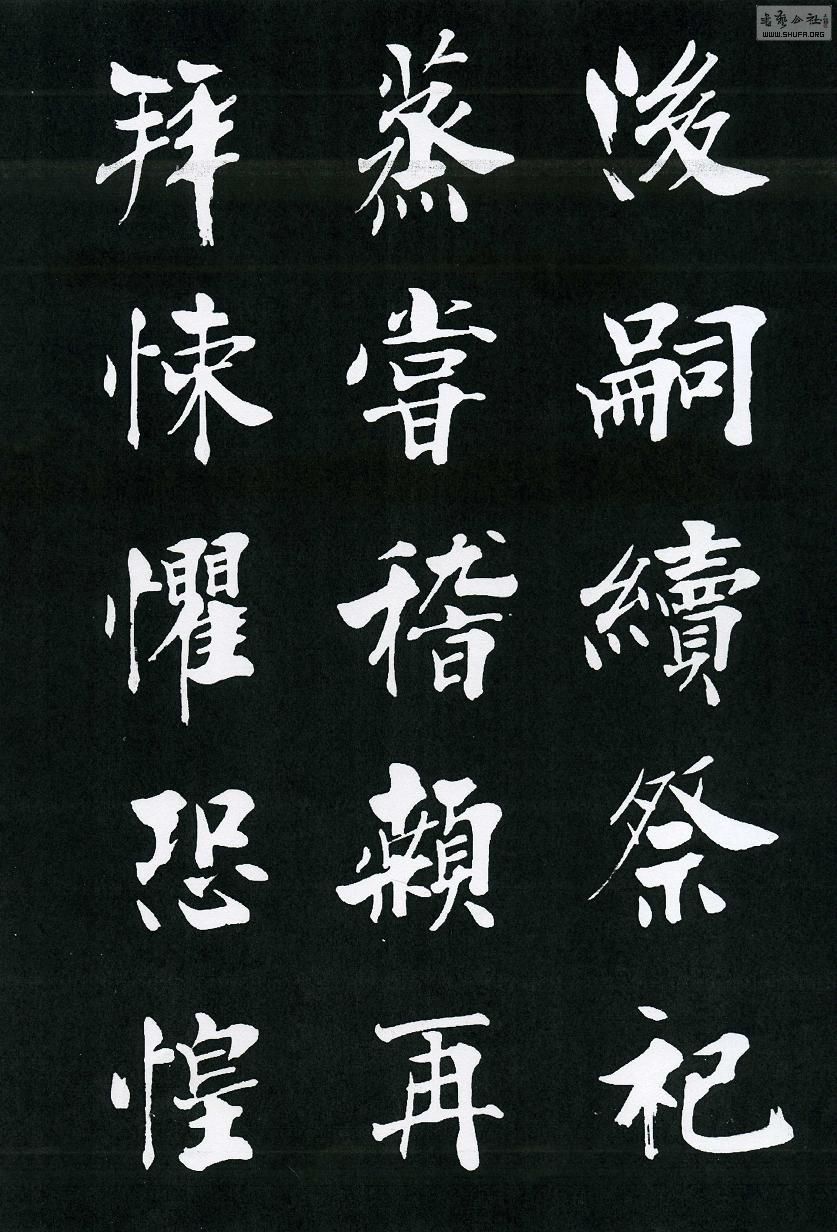 後嗣續祭祀
蒸嘗稽顙再
拜悚懼恐惶
WWW.SHUFA.ORG